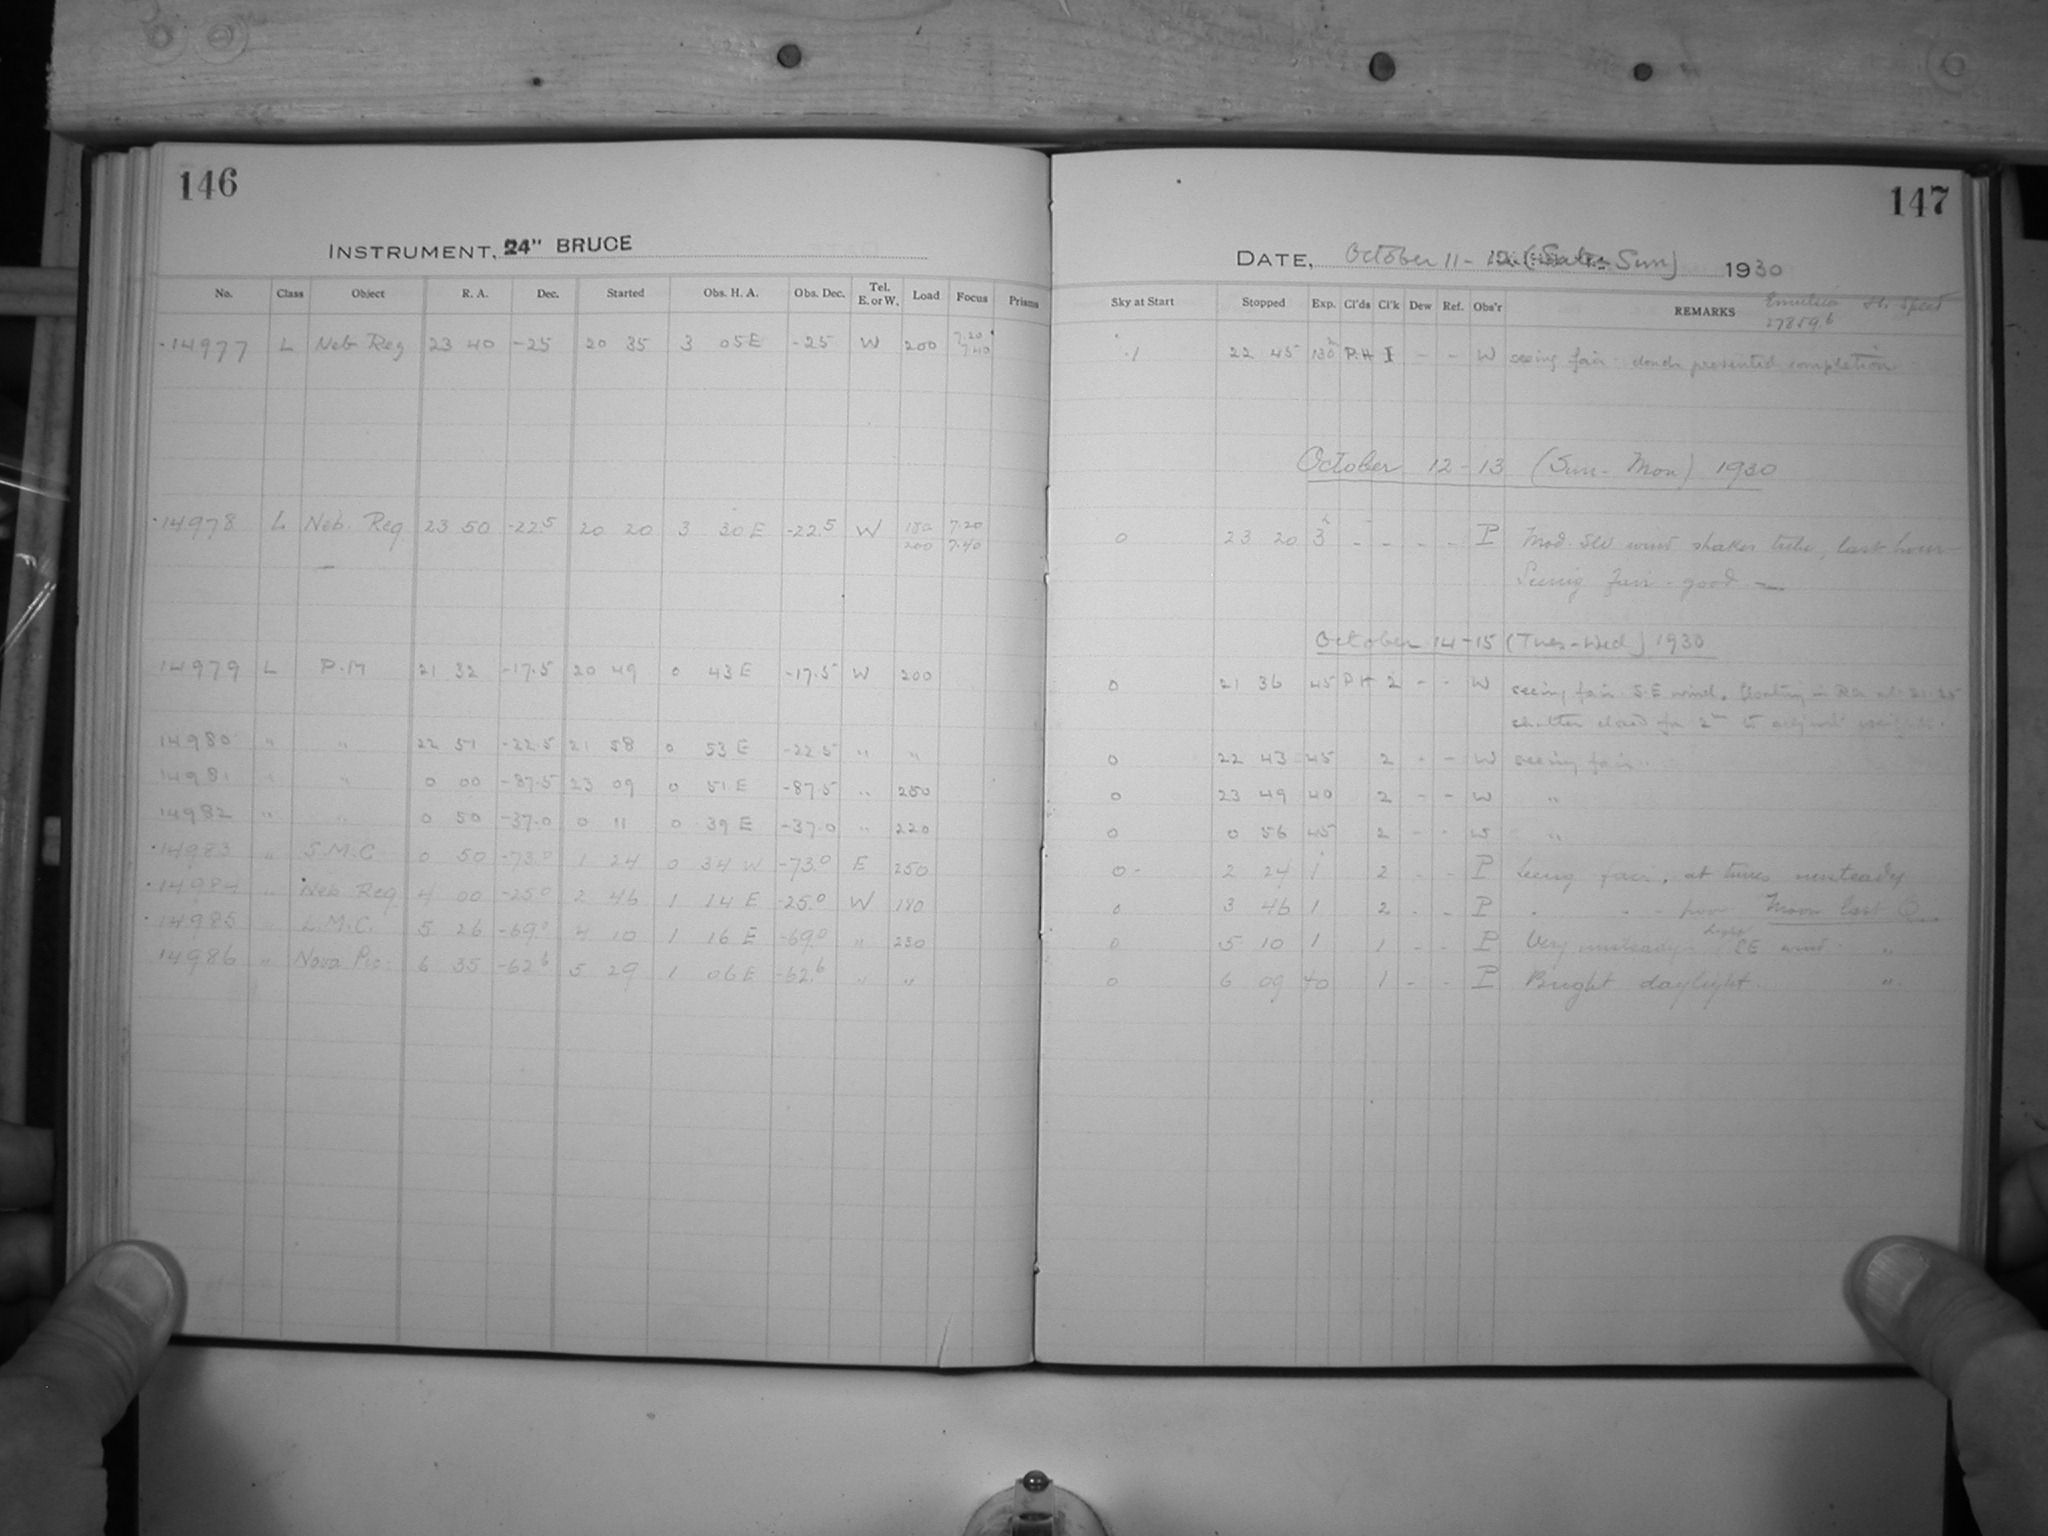 146
INSTRUMENT, 24" BRUCE
No. Class Object R. A. Dec. Started Obs. H. A. Obs. Dec. Tel. E. or W. Load Focus Prisms
14977 L Neb Reg 23 40 -25 20 35 3 05 E -25 W 200 7.20 7.40
14978 L Neb. Reg 23 50 -22.5 20 20 3 30 E -22.5 W 180 200 7.20 7.40
14979 L P.M 21 32 -17.5 20 49 0 43 E -17.5 W 200
14980 " " 22 51 -22.5 21 58 0 53 E -22.5 " "
14981 " " 0 00 -87.5 23 09 0 51 E -87.5 " 250
14982 " " 0 50 -37.0 0 11 0 39 E -37.0 " 220
14983 " S.M.C 0 50 -73.0 1 24 0 34 W -73.0 E 250
14984 " Neb Reg 4 00 -25.0 2 46 1 14 E -25.0 W 180
14985 " L.M.C. 5 26 -69.0 4 10 1 16 E -69.0 " 230
14986 " Nova Pic. 6 35 -62.6 5 29 1 06 E -62.6 " "
147
DATE, October 11 - 12 Sun) 1930
Sky at Start Stopped Exp. Cl'ds Cl'k Dew Ref. Obs'r REMARKS Emulsion 27859.6 H. Speed
.1 22 45 130m P.H I - - W seeing fair clouds prevented completion
October 12-13 (Sun-Mon) 1930
0 23 20 3h - - - - P Mod. SW wind shakes tube, last hour
Seeing fair - good
October 14-15 (Tues-Wed) 1930
0 21 36 45 P H 2 - - W seeing fair S.E wind. in RA at
shutter closed for 2m to adjust
0 22 43 45 2 - - W seeing fair
0 23 49 40 2 - - W "
0 0 56 45 2 - - W "
0- 2 24 1 2 - - P Seeing fair, at times unsteady
0 3 46 1 2 - - P " " - poor Moon last Q.
0 5 10 1 1 - - P Very unsteady - light SE wind "
0 6 09 40 1 - - P Bright daylight. "